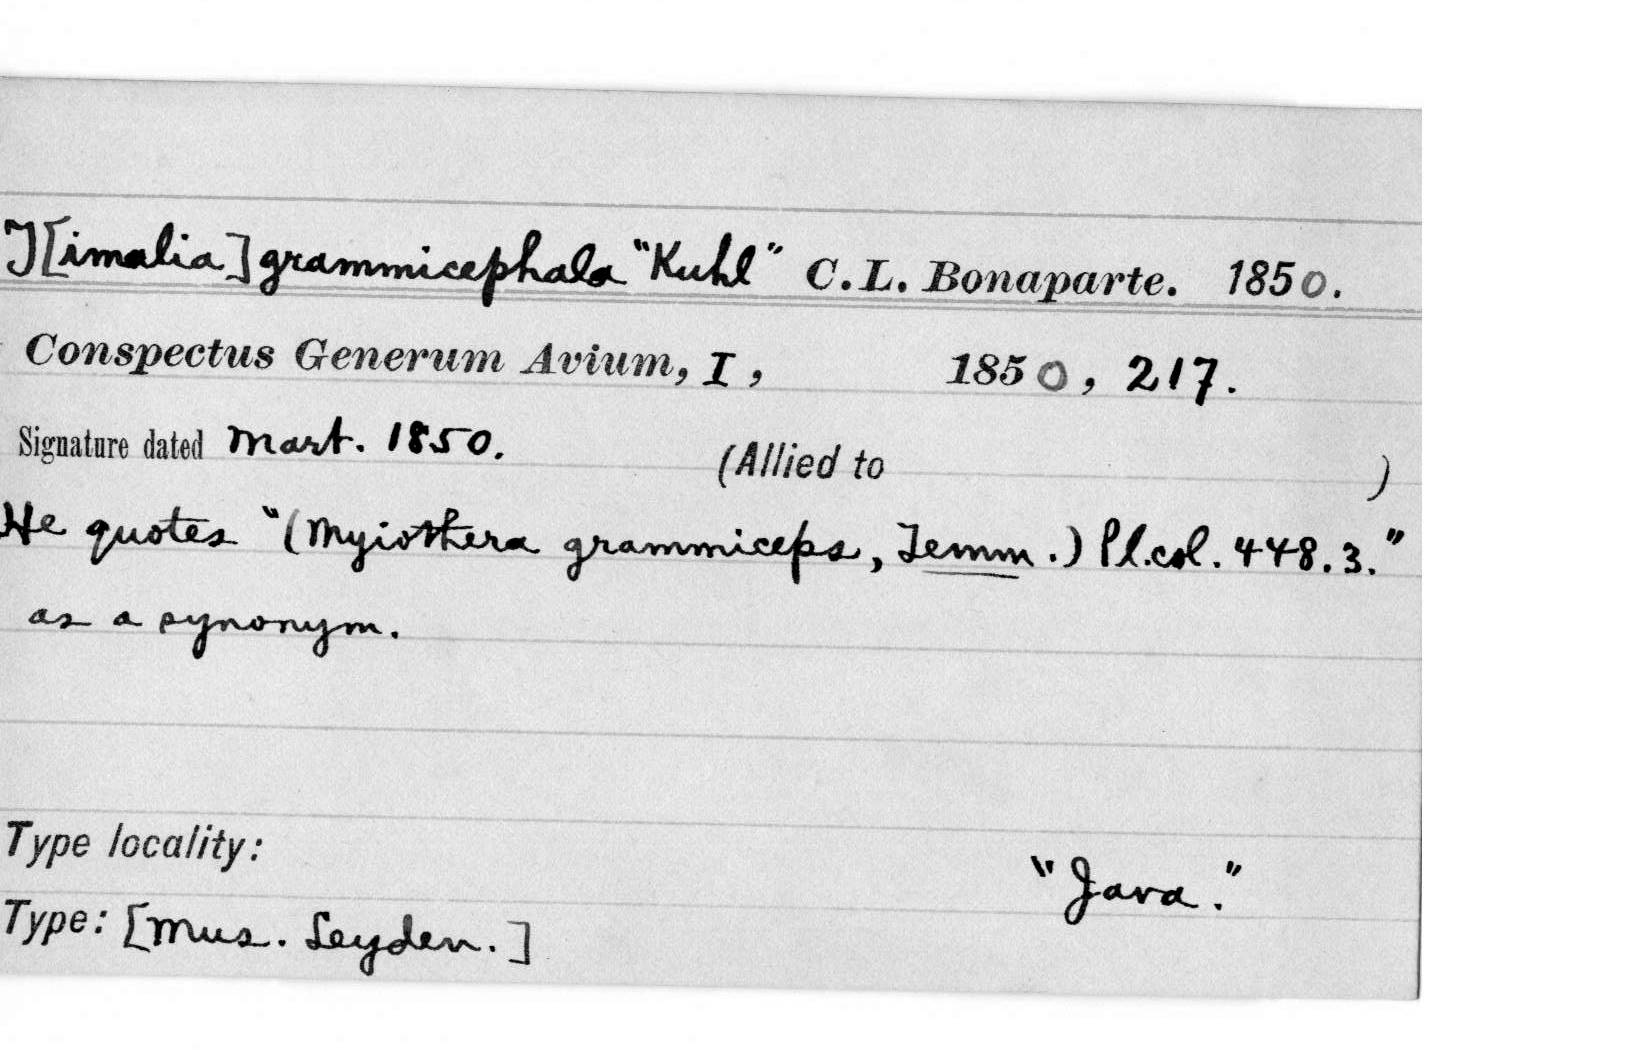 T[imalia] grammicephala "Kuhl" C. L. Bonaparte. 1850.
Conspectus Generum Avium, I, 1850, 217.
Signature dated Mart. 1850. (Allied to )
He quotes "(Myiothera grammiceps, Temm.) Pl.col. 448.3."
as a synonym.
Type locality: "Java."
Type: [Mus. Leyden.]